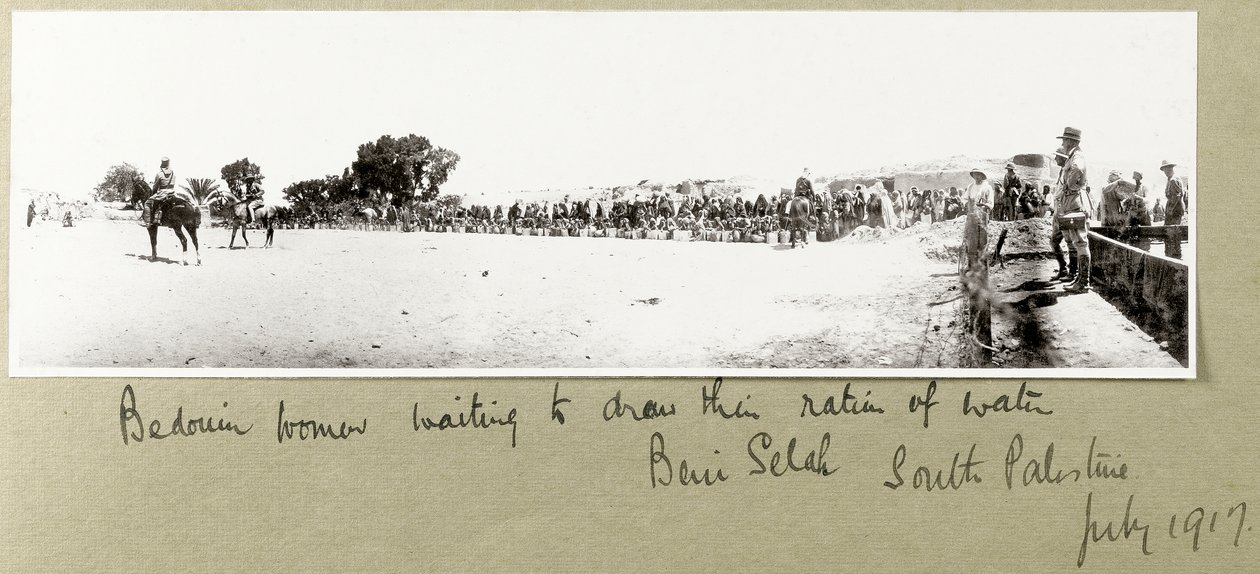 Bedouin Women waiting to draw their ration of water
Beni Selah South Palestine.
July 1917.